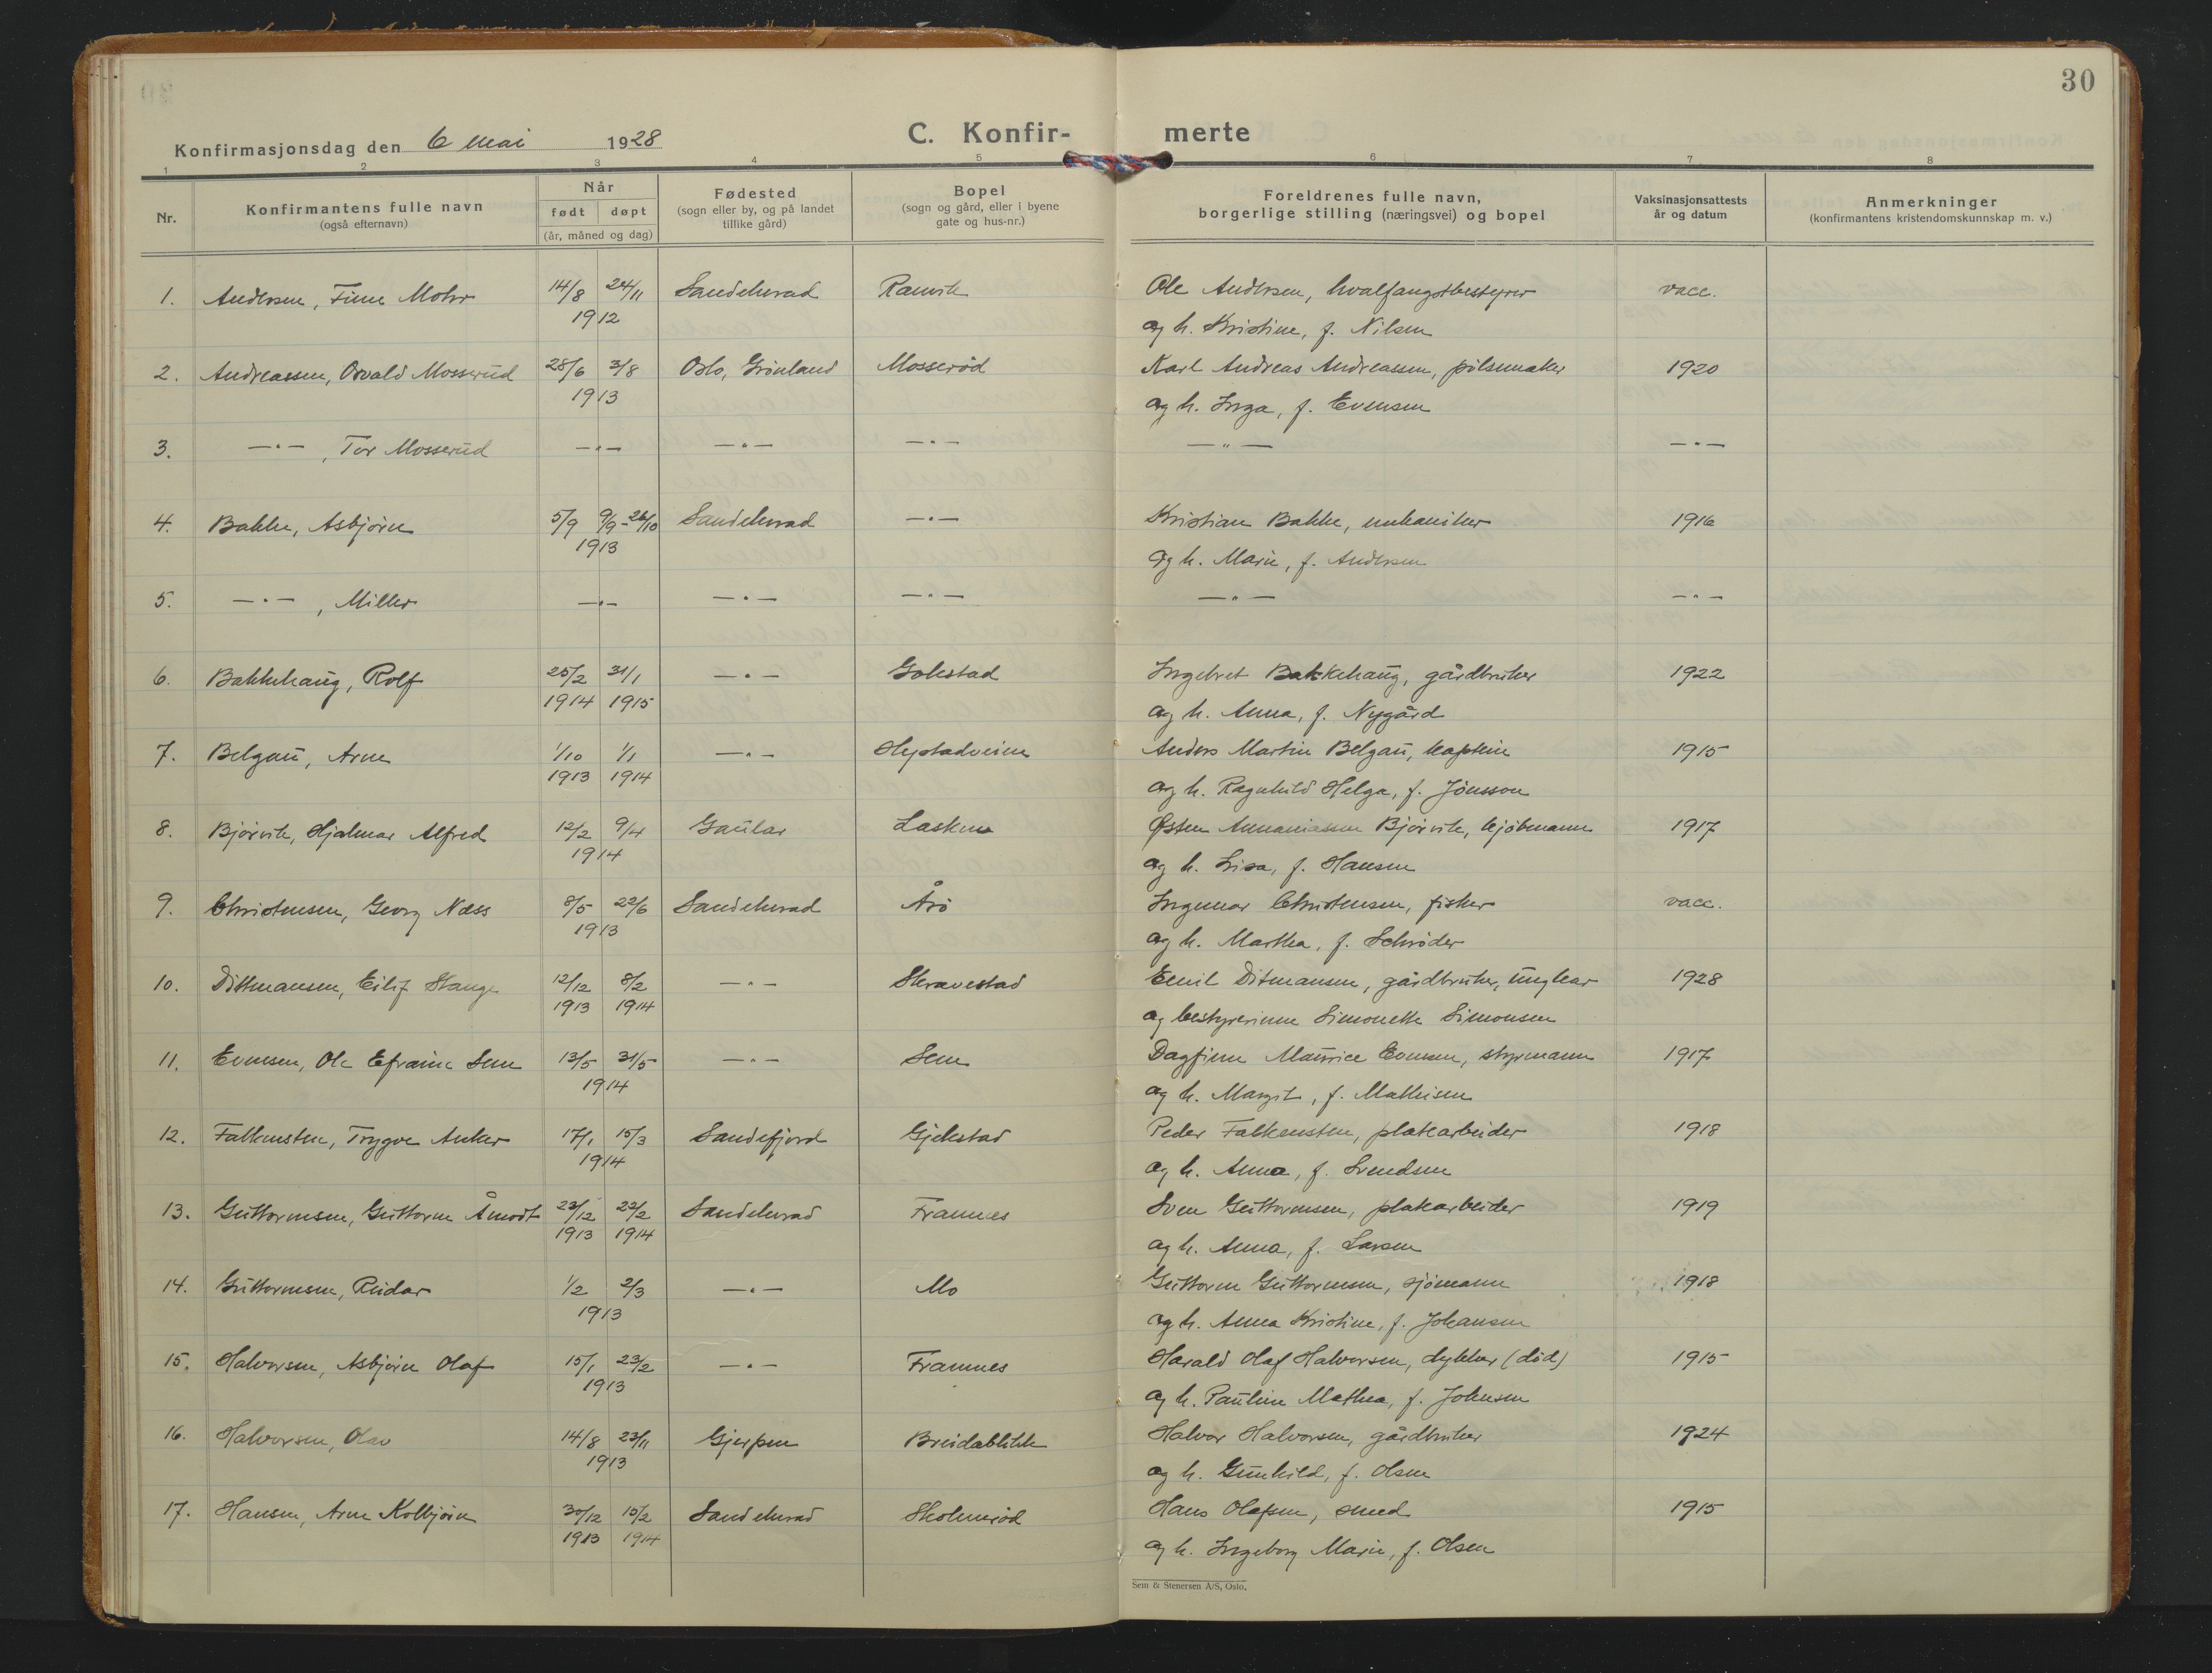 30
Konfirmasjonsdag den 6 mai 1928
C. Konfir- merte
1 2 3 4 5 6 7 8
Nr.
Konfirmantens fulle navn
(også efternavn)
Når
født døpt
(år, måned og dag)
Fødested
(sogn eller by, og på landet
tillike gård)
Bopel
(sogn og gård, eller i byene
gate og hus-nr.)
Foreldrenes fulle navn,
borgerlige stilling (næringsvei) og bopel
Vaksinasjonsattests
år og datum
Anmerkninger
(konfirmantens kristendomskunnskap m. v.)
1. Andersen, Finn Mohr 14/8 24/11 Sandeherad Ranvik Ole Andersen, hvalfangstbestyrer vacc.
1912 og h. Kristine, f. Nilsen
2. Andreassen, Osvald Mosserud 28/6 3/8 Oslo, Grönland Mosseröd Karl Andreas Andreassen, pölsemaker 1920
1913 og h. Inga, f. Evensen
3. —"— , Tor Mosserud —"— —"— —"— —"— —"—
4. Bakke, Asbjörn 5/9 9/9-26/10 Sandeherad —"— Kristian Bakke, mekaniker 1916
1913 og h. Marie, f. Andersen
5. —"— , Miller —"— —"— —"— —"— —"—
6. Bakkehaug, Rolf 25/2 31/1 —"— Gokstad Ingebret Bakkehaug, gårdbruker 1922
1914 1915 og h. Anna, f. Nygård
7. Belgau, Arne 1/10 1/1 —"— Hystadveien Anders Martin Belgau, kaptein 1915
1913 1914 og h. Ragnhild Helga, f. Jönsson
8. Björvik, Hjalmar Alfred 12/2 9/4 Gaular Lasken Østen Annaniassen Björvik, kjöbmann 1917
1914 og h. Lisa, f. Hansen
9. Christensen, Georg Næss 8/5 22/6 Sandeherad Årö Ingemar Christensen, fisker vacc.
1913 og h. Marthea, f. Schröder
10. Dittmansen, Eilif Stange 12/12 8/2 —"— Skravestad Emil Ditmansen, gårdbruker, ungkar 1928
1913 1914 og bestyrerinne Simonette Simonsen
11. Evensen, Ole Efraim Sem 13/5 31/5 —"— Sem Dagfinn Maurice Evensen, styrmann 1917
1914 og h. Margit, f. Mathisen
12. Falkensten, Trygve Anker 17/1 15/3 Sandefjord Gjekstad Peder Falkensten, platearbeider 1918
1914 og h. Anna, f. Svendsen
13. Guttormsen, Guttorm Åmodt 23/12 22/2 Sandeherad Framnes Sven Guttormsen, platearbeider 1919
1913 1914 og h. Anna, f. Larsen
14. Guttormsen, Reidar 1/2 2/3 —"— Mo Guttorm Guttormsen, sjömann 1918
1913 og h. Anna Kristine, f. Johansen
15. Halvorsen, Asbjörn Olaf 15/1 23/2 —"— Framnes Harald Olaf Halvorsen, dykker (död) 1915
1913 og h. Pauline Mathea, f. Johnsen
16. Halvorsen, Olav 14/8 23/11 Gjerpen Breidablikk Halvor Halvorsen, gårdbruker 1924
1913 og h. Gunhild, f. Olsen
17. Hansen, Arne Kolbjörn 30/12 15/2 Sandeherad Skolmeröd Hans Olafsen, smed 1915
1913 1914 og h. Ingeborg Marie, f. Olsen
Sem & Stenersen A/S, Oslo.